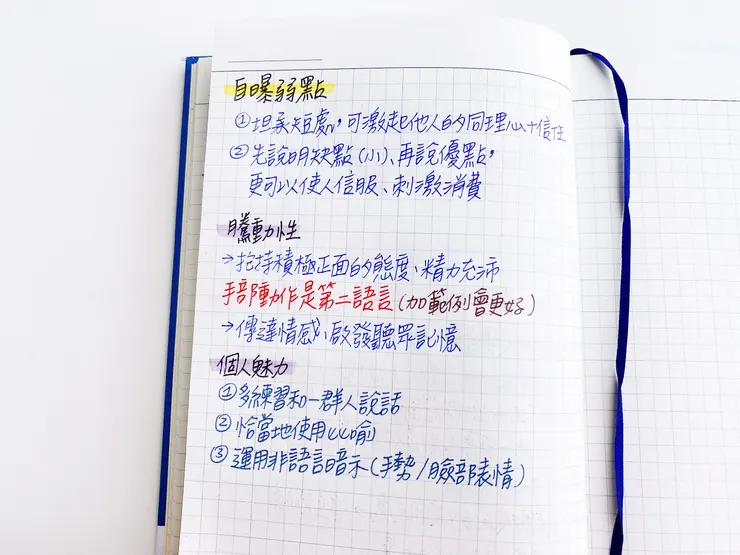 自曝弱點
①坦承短處,可激起他人的同理心+信任
②先說明缺點(小)、再說優點,
更可以使人信服、刺激消費
騰動性
→抱持積極正面的態度、精力充沛
手部動作是第二語言(加範例會更好)
→傳達情感、啟發聽眾記憶
個人魅力
①多練習和一群人說話
②恰當地使用比喻
③運用非語言暗示(手勢/臉部表情)